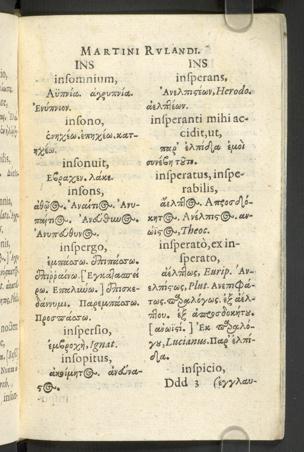 MARTINI RVLANDI.
INS
insomnium,
Αϋπνία. ἀγρυπνία.
Ἐνύπνιον.
insono,
ἐνηχέω. ἐπηχέω. κατ-
ηχέω.
insonuit,
insons,
ἀθῷος. Ἀναίτιος. Ἀνυ-
Ἀνυπεύθυνος.
inspergo,
ἐμπάσσω. ἐπιπάσσω.
ρω. Ἐπαλείνω.] ἐπισκε-
δάννυμι. Παρεμπάσσω.
Προσπάσσω.
inspersio,
ἐμβροχὴ, Ignat.
insopitus,
ἀκοίμητος. ἀνύνα-
ςος.
INS
insperans,
Ἀνελπιςέων, Herodo.
ἀελπέων.
insperanti mihi ac-
cidit, ut,
παρ' ἐλπίδα ἐμοὶ
συνέβη τοῦτο.
insperatus, inspe-
rabilis,
ἄελπτος. Ἀπροσδό-
κητος. Ἀνέλπιςος. ἀν-
ώιςος, Theoc.
insperatò, ex in-
sperato,
ἀέλπτως, Eurip. Ἀν-
ελπίςως, Plut. Ἀνεπιφά-
τως. παραλόγως. ἐξ ἀέλ-
πτου. ἐξ ἀπροσδοκήτου.
[ἀϊωϊςί.] Ἐκ παραλό-
γου, Lucianus. Παρ' ἐλπί-
δα.
inspicio,
Ddd 3 (ἐγγλαυ-